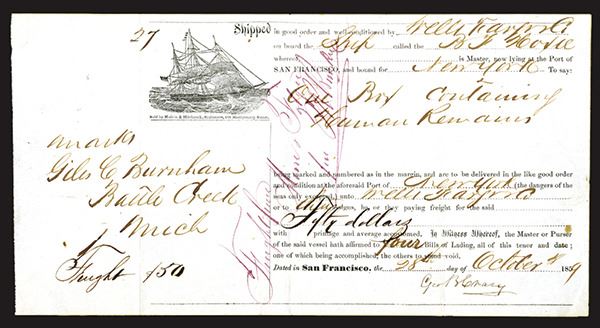 27
Shipped in good order and well conditioned by Wells Fargo & Co
on board the Ship called the B F Hoxie
whereof is Master, now lying at the Port of
SAN FRANCISCO, and bound for New York To say:
One Box Containing
Human Remains
marks
Giles C Burnham
Battle Creek
Mich
Freight $50
being marked and numbered as in the margin, and are to be delivered in the like good order
and condition at the aforesaid Port of New York (the dangers of the
seas only excepted,) unto Wells Fargo & Co
or to their assigns, he, or they paying freight for the said
Fifty dollars
with primage and average accustomed. In Witness Whereof, the Master or Purser
of the said vessel hath affirmed to four Bills of Lading, all of this tenor and date;
one of which being accomplished, the others to stand void.
Dated in San Francisco, the 28th day of October 1859